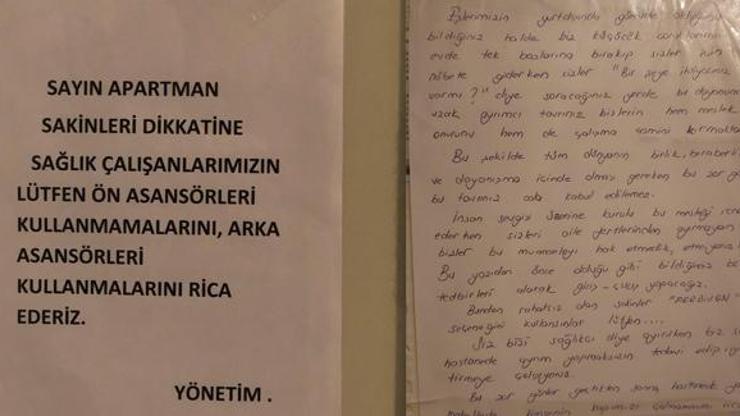 SAYIN APARTMAN
SAKİNLERİ DİKKATİNE
SAĞLIK ÇALIŞANLARIMIZIN
LÜTFEN ÖN ASANSÖRLERİ
KULLANMAMALARINI, ARKA
ASANSÖRLERİ
KULLANMALARINI RİCA
EDERİZ.
YÖNETİM .
Eşlerimizin yurtdışında görevde olduğunu
bildiğiniz halde biz küçücük çocuklarımızı
evde tek başlarına bırakıp sizler için
nöbete giderken sizler "Bir şeye ihtiyacınız
varmı?" diye soracağınız yerde bu dayanışmadan
uzak ayrımcı tavrınız bizlerin hem meslek
onurunu hem de çalışma azmini kırmakta
Bu şekilde tüm dünyanın birlik, beraberlik
ve dayanışma içinde olması gereken bu zor
bu tavrınız asla kabul edilemez.
İnsan sevgisi üzerine kurulu bu mesleği
ederken sizleri aile fertlerinden ayırmayan
bizler bu muameleyi hak etmedik, etmiyoruz
Bu yazıdan önce olduğu gibi bildiğimiz
tedbirleri alarak giriş-çıkış yapacağız.
Bundan rahatsız olan sakinler "MERDİVEN"
seçeneğini kullansınlar lütfen....
Siz bizi sağlıkçı diye ayırırken biz
hastanede ayrım yapmaksızın tedavi edip
tirmeye çalışıyoruz.
Bu zor günler geçtikten sonra hastanede